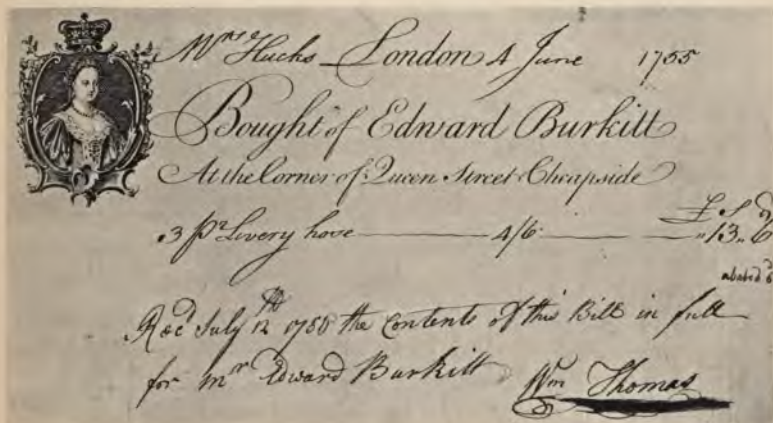 Mrs Hucks London 4 June 1755
Bought of Edward Burkitt
At the Corner of Queen Street Cheapside
£ S d
3 pr Livery hose 4/6 „13„6
abated 6d
Recd July 12th 1756 the Contents of this Bill in full
for Mr Edward Burkitt Wm Thomas